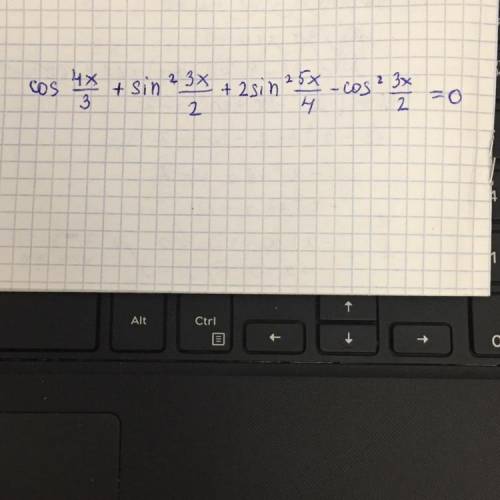 cos 4x/3 + sin² 3x/2 + 2sin² 5x/4 - cos² 3x/2 = 0
Alt Ctrl ↑
← ↓ →